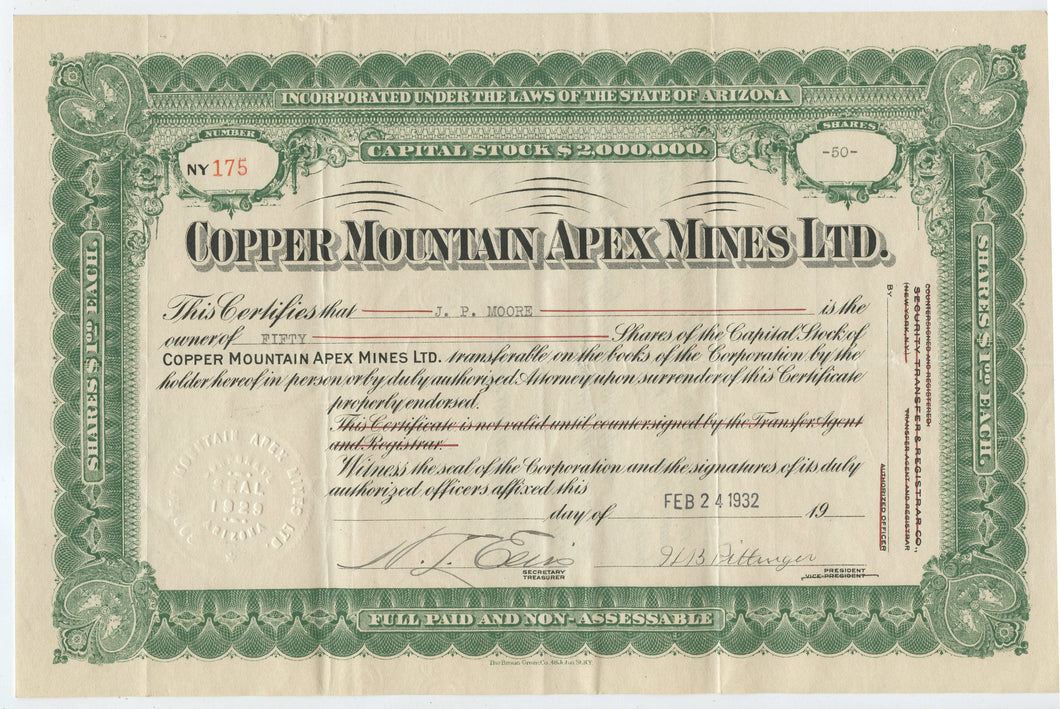 INCORPORATED UNDER THE LAWS OF THE STATE OF ARIZONA
NUMBER
NY 175
CAPITAL STOCK $2,000,000.
SHARES
-50-
COPPER MOUNTAIN APEX MINES LTD.
This Certifies that J. P. MOORE is the
owner of FIFTY Shares of the Capital Stock of
COPPER MOUNTAIN APEX MINES LTD. transferable on the books of the Corporation by the
holder hereof in person or by duly authorized Attorney upon surrender of this Certificate
properly endorsed.
This Certificate is not valid until countersigned by the Transfer Agent
and Registrar.
Witness the seal of the Corporation and the signatures of its duly
authorized officers affixed this
day of FEB 24 1932 19
SECRETARY
TREASURER
H B Pittinger
PRESIDENT
VICE-PRESIDENT
SHARES $1.00 EACH.
SHARES $1.00 EACH.
COUNTERSIGNED AND REGISTERED:
SECURITY TRANSFER & REGISTRAR CO.,
(NEW YORK, N.Y.) TRANSFER AGENT AND REGISTRAR
BY
AUTHORIZED OFFICER
MOUNTAIN APEX MINES LTD.
1929
ARIZONA
FULL PAID AND NON-ASSESSABLE